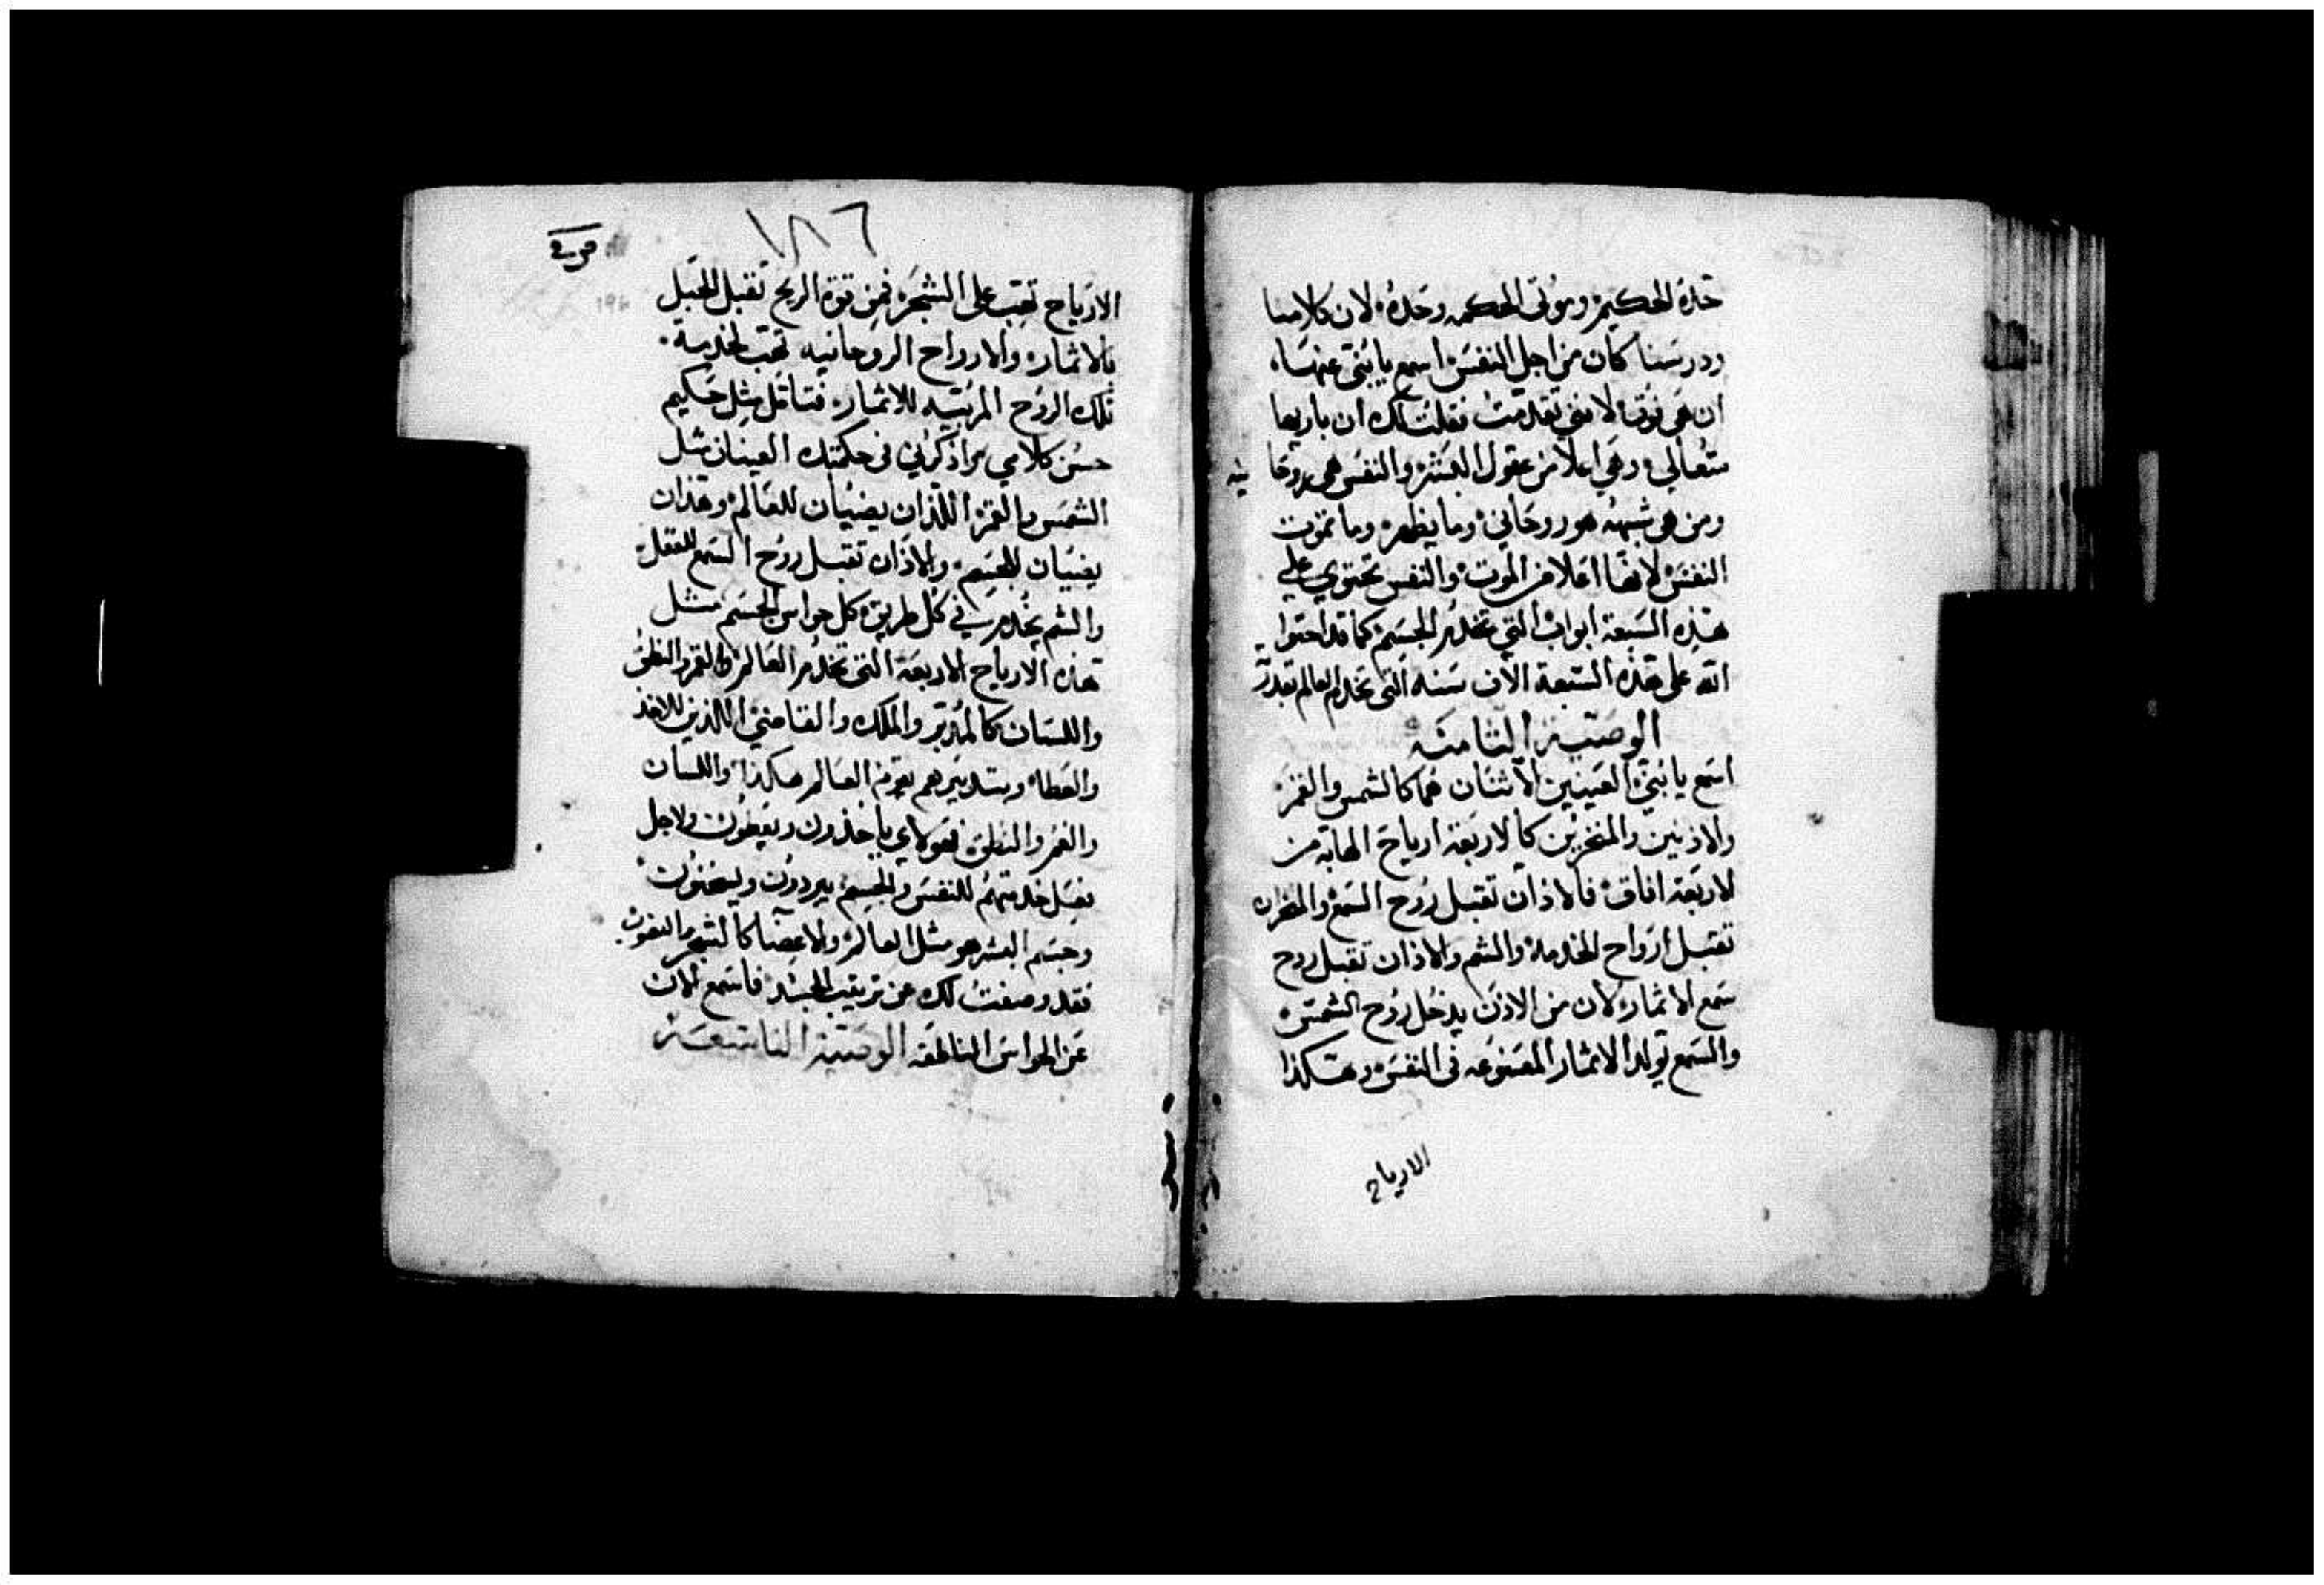 حده الحكيم وموتى الحكمه وحده لان كلامنا
ودرسنا كان من اجل النفس اسمع يا بنى عنها
ان هى لاننى تقدمت فقلت لك ان باريها
متعالي وهي اعلا من عقول البشر والنفس هى روحا
نيه
ومن هى شبهه هو روحاني وما يظهر وما تموت
النفس لانها اعلا من الموت والنفس تحتوي على
هذه السبعة ابواب التي تخدم الجسم كما قد احتوا
الله على هذه السبعة الاف سنه التى تخدم العالم
الوصية الثامنه
اسمع يا بني العينين الاثنان هما كالشمس والقمر
والاذنين والمنخرين كالاربعة ارياح الهابه من
الاربعة افاق فالاذان تقبل روح السمع والمنخران
تقبل ارواح الخدمه والشم والاذان تقبل روح
سمع الاثمار لان من الاذن يدخل روح الشمس
والسمع تولد الاثمار المصنوعه فى النفس وهكذا
الارياح
١٨٦
الارياح تهب على الشجره فمن قوة الريح تقبل الحبل
بالاثمار والارواح الروحانيه تهب لخدمة
تلك الروح المربيه للاثمار فتامل مثل حكيم
حسن كلامي مراد فى حكمتك العينان مثل
الشمس والقمر اللذان يضيان للعالم وهذان
يضيان للجسم والاذان تقبل روح السمع للعقل
والشم يخدم في كل طريق كل حواس الجسم مثل
هذه الارياح الاربعة التى تخدم العالم والفم والنطق
واللسان كالمدبر والملك والقاضي اللذين للاخذ
والعطا وبتدبيرهم يقوم العالم هكذا واللسان
والفم والنطق فهولاي ياخذون ويعطون ولاجل
خدمتهم للنفس والجسم يبردون ويسخنون
وجسم البشر هو مثل العالم والاعضا كالشجر
فقد وصفت لك عن ترتيب الجسد فاسمع الان
عن الحواس الناطقه الوصية التاسعة